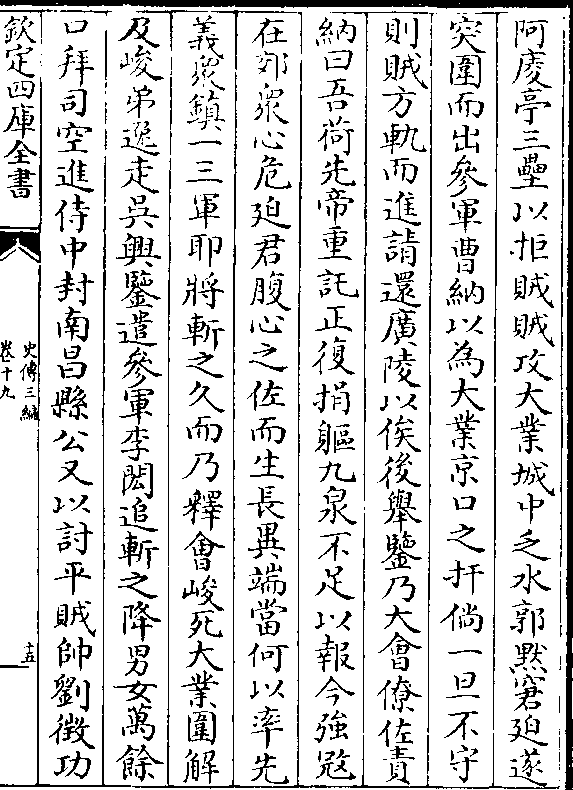 阿庱亭三壘以拒賊賊攻大業城中乏水郭黙窘廹遂
突圍而出參軍曹納以為大業京口之扞倘一旦不守
則賊方軌而進請還廣陵以俟後舉鑒乃大會僚佐責
納曰吾荷先帝重託正復捐軀九泉不足以報今強㓂
在郊衆心危廹君腹心之佐而生長異端當何以率先
義衆鎮一三軍耶將斬之久而乃釋會峻死大業圍解
及峻弟逸走吳興鑒遣參軍李閎追斬之降男女萬餘
口拜司空進侍中封南昌縣公又以討平賊帥劉徴功
欽定四庫全書
史傳三編
卷十九
十五